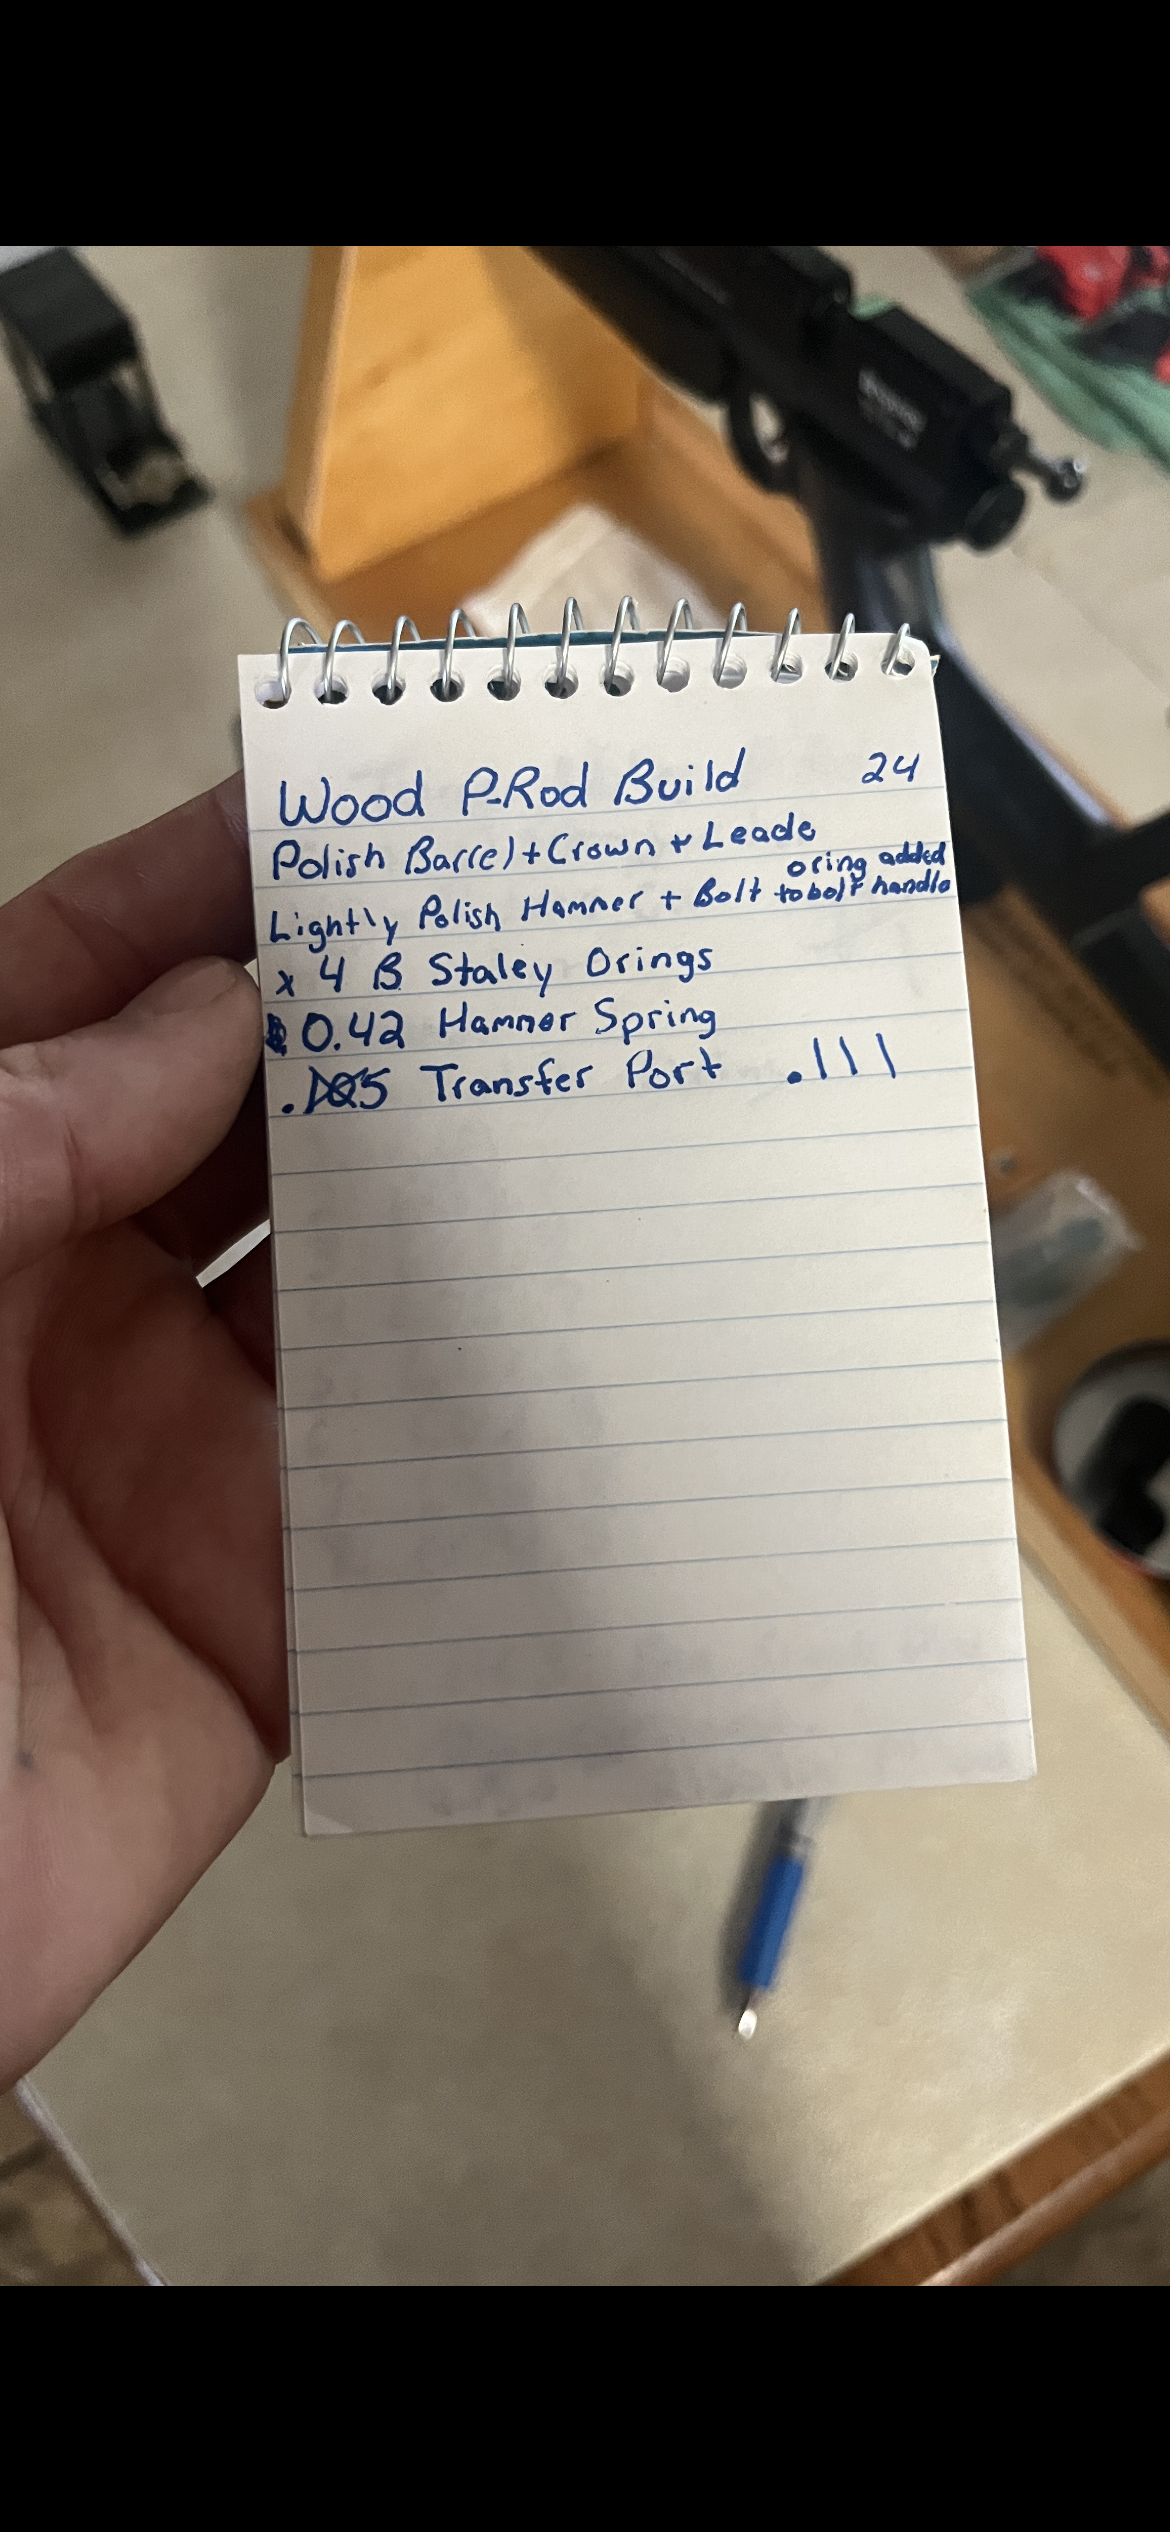 Wood P-Rod Build 24
Polish Barrel + Crown + Leade
Lightly Polish Hammer + Bolt oring added to bolt handle
x 4 B Staley Orings
0.42 Hammer Spring
.105 Transfer Port .111